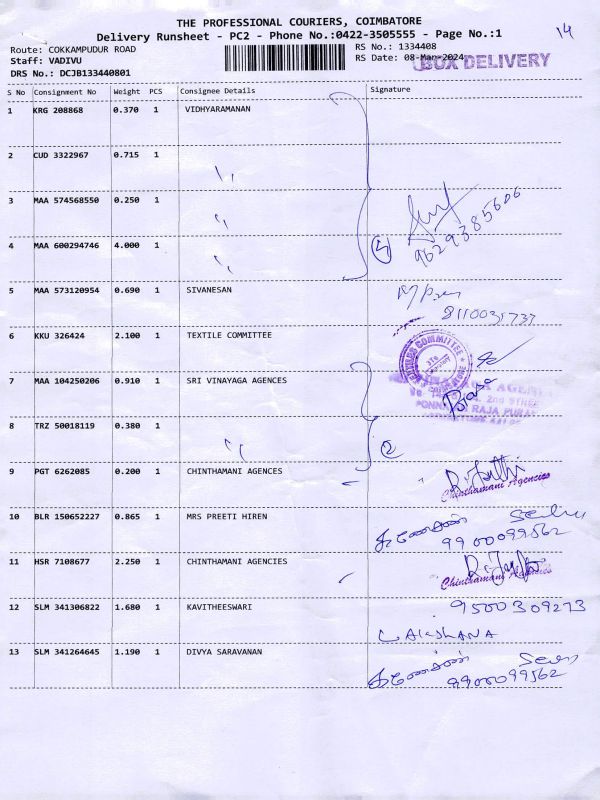 THE PROFESSIONAL COURIERS, COIMBATORE
14
Delivery Runsheet - PC2 - Phone No.:0422-3505555 - Page No.:1
Route: COKKAMPUDUR ROAD
RS No.: 1334408
Staff: VADIVU
RS Date: 08-Mar-2024
BOX DELIVERY
DRS No.: DCJB133440801
S No Consignment No Weight PCS Consignee Details Signature
1 KRG 208868 0.370 1 VIDHYARAMANAN
2 CUD 3322967 0.715 1 ,,
3 MAA 574568550 0.250 1 ,,
9629385606
4 MAA 600294746 4.000 1 ,,
4
5 MAA 573120954 0.690 1 SIVANESAN
8110031737
6 KKU 326424 2.100 1 TEXTILE COMMITTEE
TEXTILES COMMITTEE
7 MAA 104250206 0.910 1 SRI VINAYAGA AGENCIES
8 TRZ 50018119 0.380 1 ,,
2
9 PGT 6262085 0.200 1 CHINTHAMANI AGENCES
Chinthamani Agencies
10 BLR 150652227 0.865 1 MRS PREETI HIREN
9900099562
11 HSR 7108677 2.250 1 CHINTHAMANI AGENCIES
Chinthamani Agencies
12 SLM 341306822 1.680 1 KAVITHEESWARI
9500309273
13 SLM 341264645 1.190 1 DIVYA SARAVANAN
9900099562